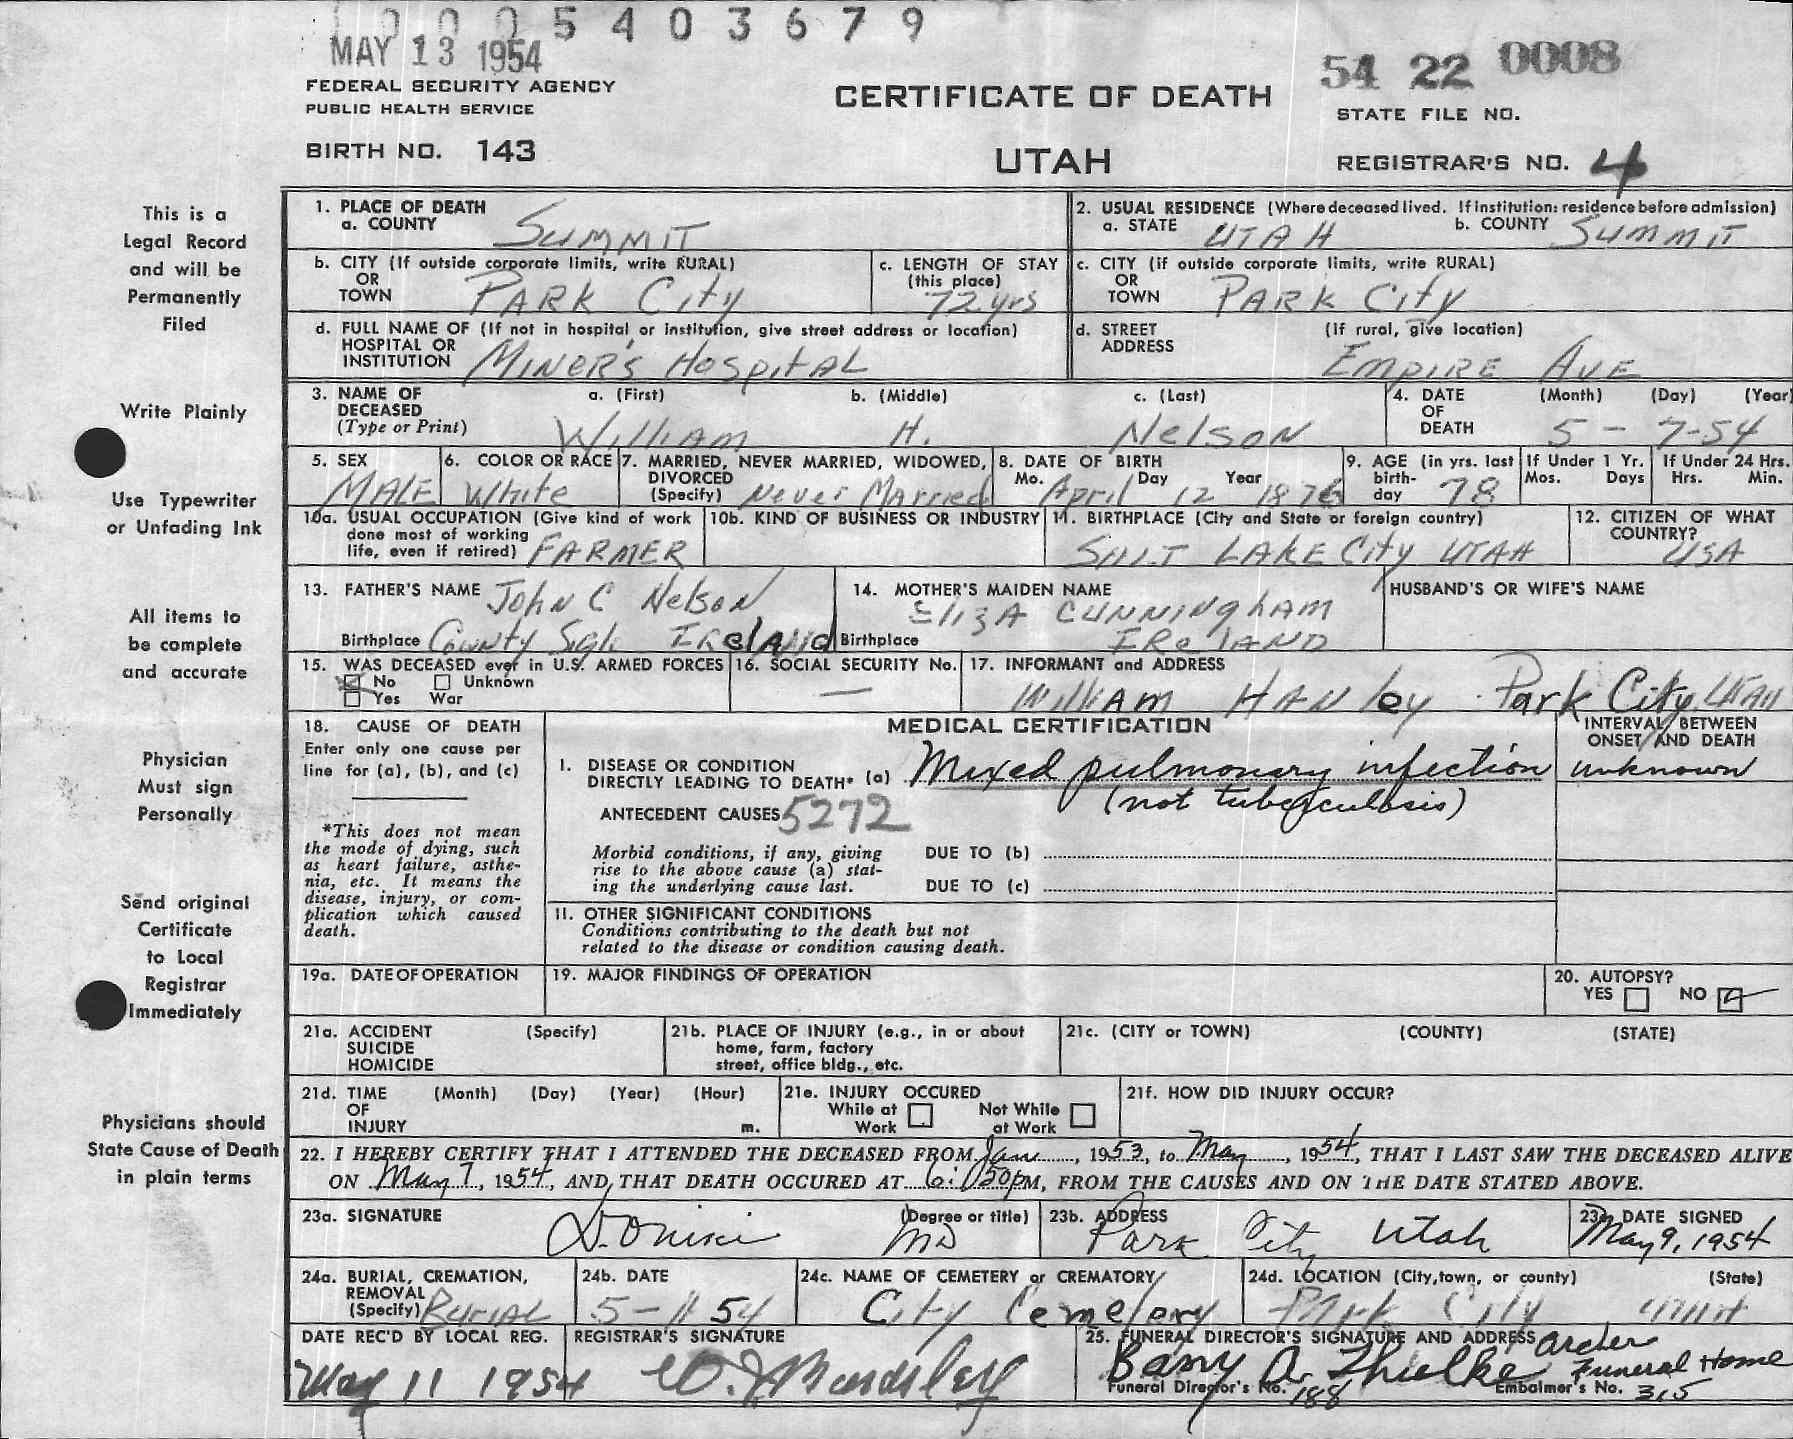 0005403679
MAY 13 1954
54 22 0008
FEDERAL SECURITY AGENCY
PUBLIC HEALTH SERVICE
CERTIFICATE OF DEATH
STATE FILE NO.
BIRTH NO. 143
UTAH
REGISTRAR'S NO. 4
This is a
Legal Record
and will be
Permanently
Filed
Write Plainly
Use Typewriter
or Unfading Ink
All items to
be complete
and accurate
Physician
Must sign
Personally
Send original
Certificate
to Local
Registrar
Immediately
Physicians should
State Cause of Death
in plain terms
1. PLACE OF DEATH
a. COUNTY SUMMIT
2. USUAL RESIDENCE (Where deceased lived. If institution: residence before admission)
a. STATE UTAH b. COUNTY SUMMIT
b. CITY (If outside corporate limits, write RURAL)
OR
TOWN PARK City
c. LENGTH OF STAY
(this place)
72 yrs
c. CITY (if outside corporate limits, write RURAL)
OR
TOWN PARK City
d. FULL NAME OF (If not in hospital or institution, give street address or location)
HOSPITAL OR
INSTITUTION MINER'S HospitAL
d. STREET (If rural, give location)
ADDRESS EMPIRE AVE
3. NAME OF
DECEASED
(Type or Print)
a. (First) b. (Middle) c. (Last)
William H. Nelson
4. DATE
OF
DEATH
(Month) (Day) (Year)
5 - 7-54
5. SEX
MALE
6. COLOR OR RACE
White
7. MARRIED, NEVER MARRIED, WIDOWED,
DIVORCED
(Specify) Never Married
8. DATE OF BIRTH
Mo. Day Year
April 12 1876
9. AGE (in yrs. last
birth-
day 78
If Under 1 Yr.
Mos. Days
If Under 24 Hrs.
Hrs. Min.
10a. USUAL OCCUPATION (Give kind of work
done most of working
life, even if retired) FARMER
10b. KIND OF BUSINESS OR INDUSTRY
11. BIRTHPLACE (City and State or foreign country)
SALT LAKE City UTAH
12. CITIZEN OF WHAT
COUNTRY?
USA
13. FATHER'S NAME John C Nelson
Birthplace County IReLAND
14. MOTHER'S MAIDEN NAME
Eliza CUNNINghAM
Birthplace IReLAND
HUSBAND'S OR WIFE'S NAME
15. WAS DECEASED ever in U.S. ARMED FORCES
No Unknown
Yes War
16. SOCIAL SECURITY No.
—
17. INFORMANT and ADDRESS
William HANley Park City, UTAH
18. CAUSE OF DEATH
Enter only one cause per
line for (a), (b), and (c)
*This does not mean
the mode of dying, such
as heart failure, asthe-
nia, etc. It means the
disease, injury, or com-
plication which caused
death.
MEDICAL CERTIFICATION
INTERVAL BETWEEN
ONSET AND DEATH
I. DISEASE OR CONDITION
DIRECTLY LEADING TO DEATH* (a) Mixed pulmonary infection unknown
(not tuberculosis)
ANTECEDENT CAUSES 5272
Morbid conditions, if any, giving
rise to the above cause (a) stat-
ing the underlying cause last.
DUE TO (b)
DUE TO (c)
II. OTHER SIGNIFICANT CONDITIONS
Conditions contributing to the death but not
related to the disease or condition causing death.
19a. DATE OF OPERATION
19. MAJOR FINDINGS OF OPERATION
20. AUTOPSY?
YES NO
21a. ACCIDENT (Specify)
SUICIDE
HOMICIDE
21b. PLACE OF INJURY (e.g., in or about
home, farm, factory
street, office bldg., etc.
21c. (CITY or TOWN) (COUNTY) (STATE)
21d. TIME (Month) (Day) (Year) (Hour)
OF
INJURY m.
21e. INJURY OCCURED
While at Work Not While at Work
21f. HOW DID INJURY OCCUR?
22. I HEREBY CERTIFY THAT I ATTENDED THE DECEASED FROM Jan, 1953, to May, 1954, THAT I LAST SAW THE DECEASED ALIVE
ON May 7, 1954, AND THAT DEATH OCCURED AT 6:50pM, FROM THE CAUSES AND ON THE DATE STATED ABOVE.
23a. SIGNATURE (Degree or title)
MD
23b. ADDRESS
Park City Utah
23c. DATE SIGNED
May 9, 1954
24a. BURIAL, CREMATION,
REMOVAL
(Specify) Burial
24b. DATE
5-11 54
24c. NAME OF CEMETERY or CREMATORY
City Cemetery
24d. LOCATION (City, town, or county) (State)
Park City Utah
DATE REC'D BY LOCAL REG.
May 11 1954
REGISTRAR'S SIGNATURE
25. FUNERAL DIRECTOR'S SIGNATURE AND ADDRESS Archer
Barry A. Thielke Funeral Home
Funeral Director's No. 188 Embalmer's No. 315